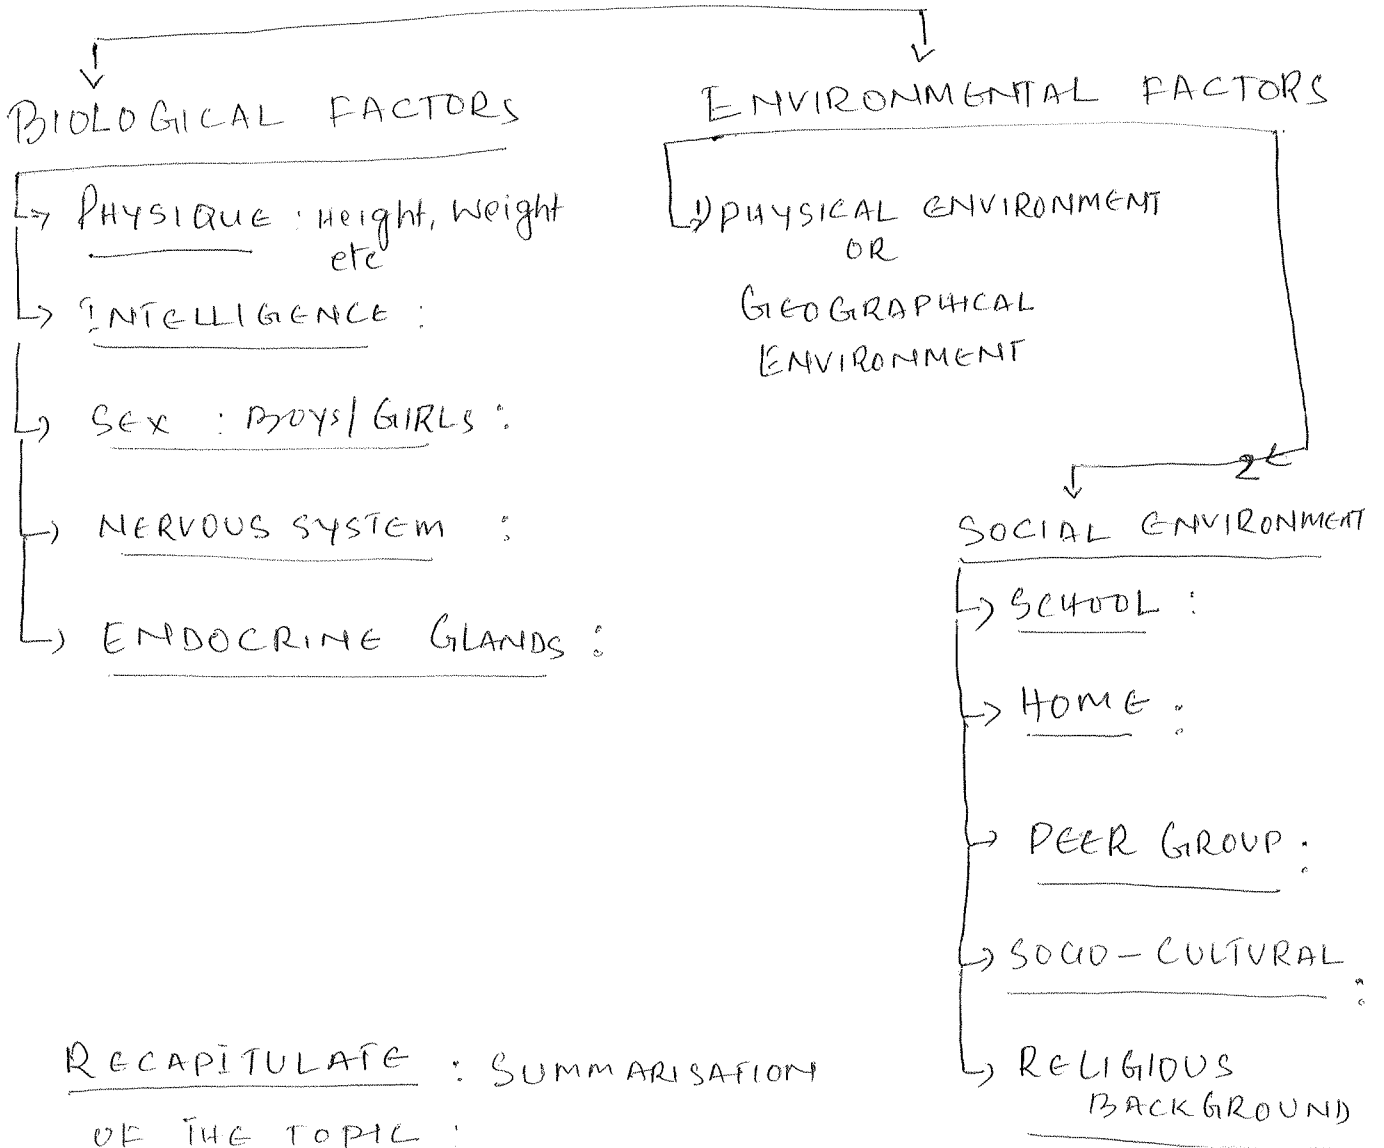 BIOLOGICAL FACTORS
PHYSIQUE : Height, Weight
etc
INTELLIGENCE :
SEX : BOYS/ GIRLS :
NERVOUS SYSTEM :
ENDOCRINE GLANDS :
ENVIRONMENTAL FACTORS
1) PHYSICAL ENVIRONMENT
OR
GEOGRAPHICAL
ENVIRONMENT
2
SOCIAL ENVIRONMENT
SCHOOL :
HOME :
PEER GROUP :
SOCIO - CULTURAL :
RELIGIOUS
BACKGROUND
RECAPITULATE : SUMMARISATION
OF THE TOPIC :